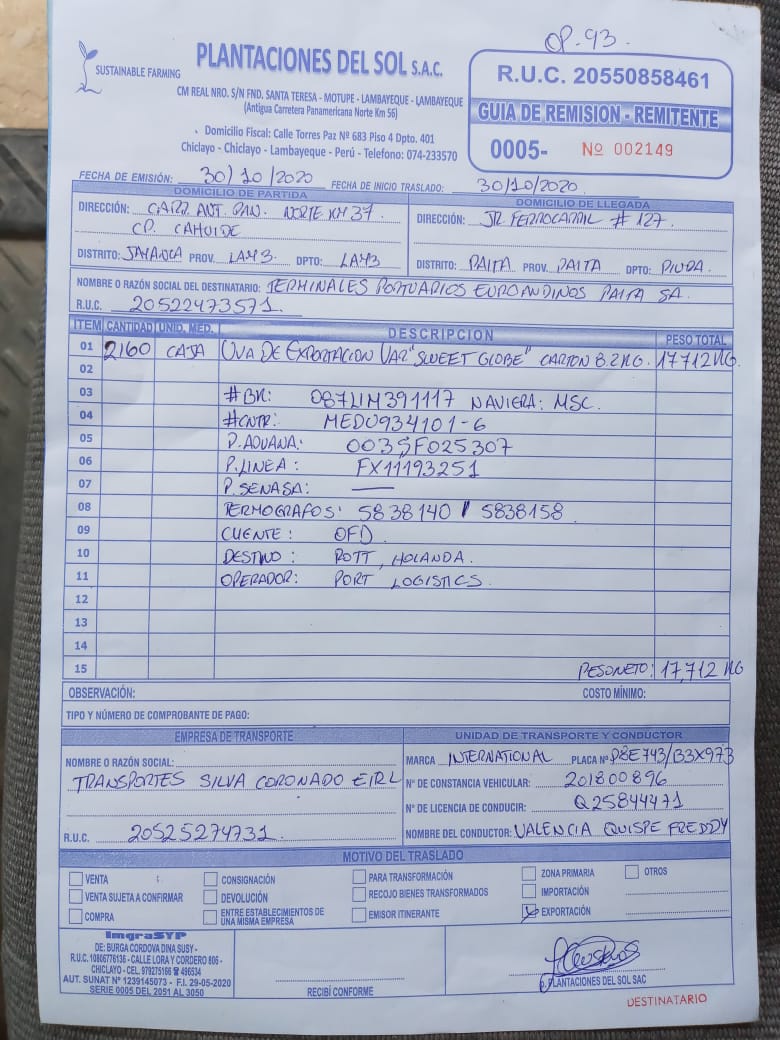 OP. 93.
SUSTAINABLE FARMING
PLANTACIONES DEL SOL S.A.C.
CM REAL NRO. S/N FND. SANTA TERESA - MOTUPE - LAMBAYEQUE - LAMBAYEQUE
(Antigua Carretera Panamericana Norte Km 56)
Domicilio Fiscal: Calle Torres Paz Nº 683 Piso 4 Dpto. 401
Chiclayo - Chiclayo - Lambayeque - Perú - Telefono: 074-233570
R.U.C. 20550858461
GUIA DE REMISION - REMITENTE
0005- Nº 002149
FECHA DE EMISIÓN: 30/10/2020 FECHA DE INICIO TRASLADO: 30/10/2020
DOMICILIO DE PARTIDA
DIRECCIÓN: CARR. ANT. PAN. NORTE KM 37.
CP. CAHUIDE
DISTRITO: JAYANCA PROV. LAMB DPTO: LAMB
DOMICILIO DE LLEGADA
DIRECCIÓN: JR. FERROCARRIL # 127.
DISTRITO: PAITA PROV. PAITA DPTO: PIURA.
NOMBRE O RAZÓN SOCIAL DEL DESTINATARIO: TERMINALES PORTUARIOS EUROANDINOS PAITA SA.
R.U.C. 20522473571.
ITEM CANTIDAD UNID. MED. DESCRIPCION PESO TOTAL
01 2160 CAJA UVA DE EXPORTACION VAR "SWEET GLOBE" CARTON 8.2 KG. 17712 KG.
02
03 #BK: 087LIM391117 NAVIERA: MSC.
04 #CNTR: MEDU934101-6
05 P. ADUANA: 003SF025307
06 P. LINEA: FX11193251
07 P. SENASA: —
08 TERMOGRAFOS: 5838140 / 5838158
09 CLIENTE: OFD.
10 DESTINO: ROTT, HOLANDA.
11 OPERADOR: PORT LOGISTICS.
12
13
14
15 PESO NETO: 17,712 KG
OBSERVACIÓN: COSTO MÍNIMO:
TIPO Y NÚMERO DE COMPROBANTE DE PAGO:
EMPRESA DE TRANSPORTE
NOMBRE O RAZÓN SOCIAL:
TRANSPORTES SILVA CORONADO EIRL
R.U.C. 20525274731.
UNIDAD DE TRANSPORTE Y CONDUCTOR
MARCA INTERNATIONAL PLACA Nº P8E743/B3X973
Nº DE CONSTANCIA VEHICULAR: 201800896
Nº DE LICENCIA DE CONDUCIR: Q25844471
NOMBRE DEL CONDUCTOR: VALENCIA QUISPE FREDDY
MOTIVO DEL TRASLADO
VENTA CONSIGNACIÓN PARA TRANSFORMACIÓN ZONA PRIMARIA OTROS
VENTA SUJETA A CONFIRMAR DEVOLUCIÓN RECOJO BIENES TRANSFORMADOS IMPORTACIÓN
COMPRA ENTRE ESTABLECIMIENTOS DE UNA MISMA EMPRESA EMISOR ITINERANTE EXPORTACIÓN
ImgraSYP
DE: BURGA CORDOVA DINA SUSY -
R.U.C. 10806776136 - CALLE LORA Y CORDERO 806 -
CHICLAYO - CEL. 979275166 ☎ 496534
AUT. SUNAT Nº 1239145073 - F.I. 29-05-2020
SERIE 0005 DEL 2051 AL 3050
RECIBÍ CONFORME
p.PLANTACIONES DEL SOL SAC
DESTINATARIO